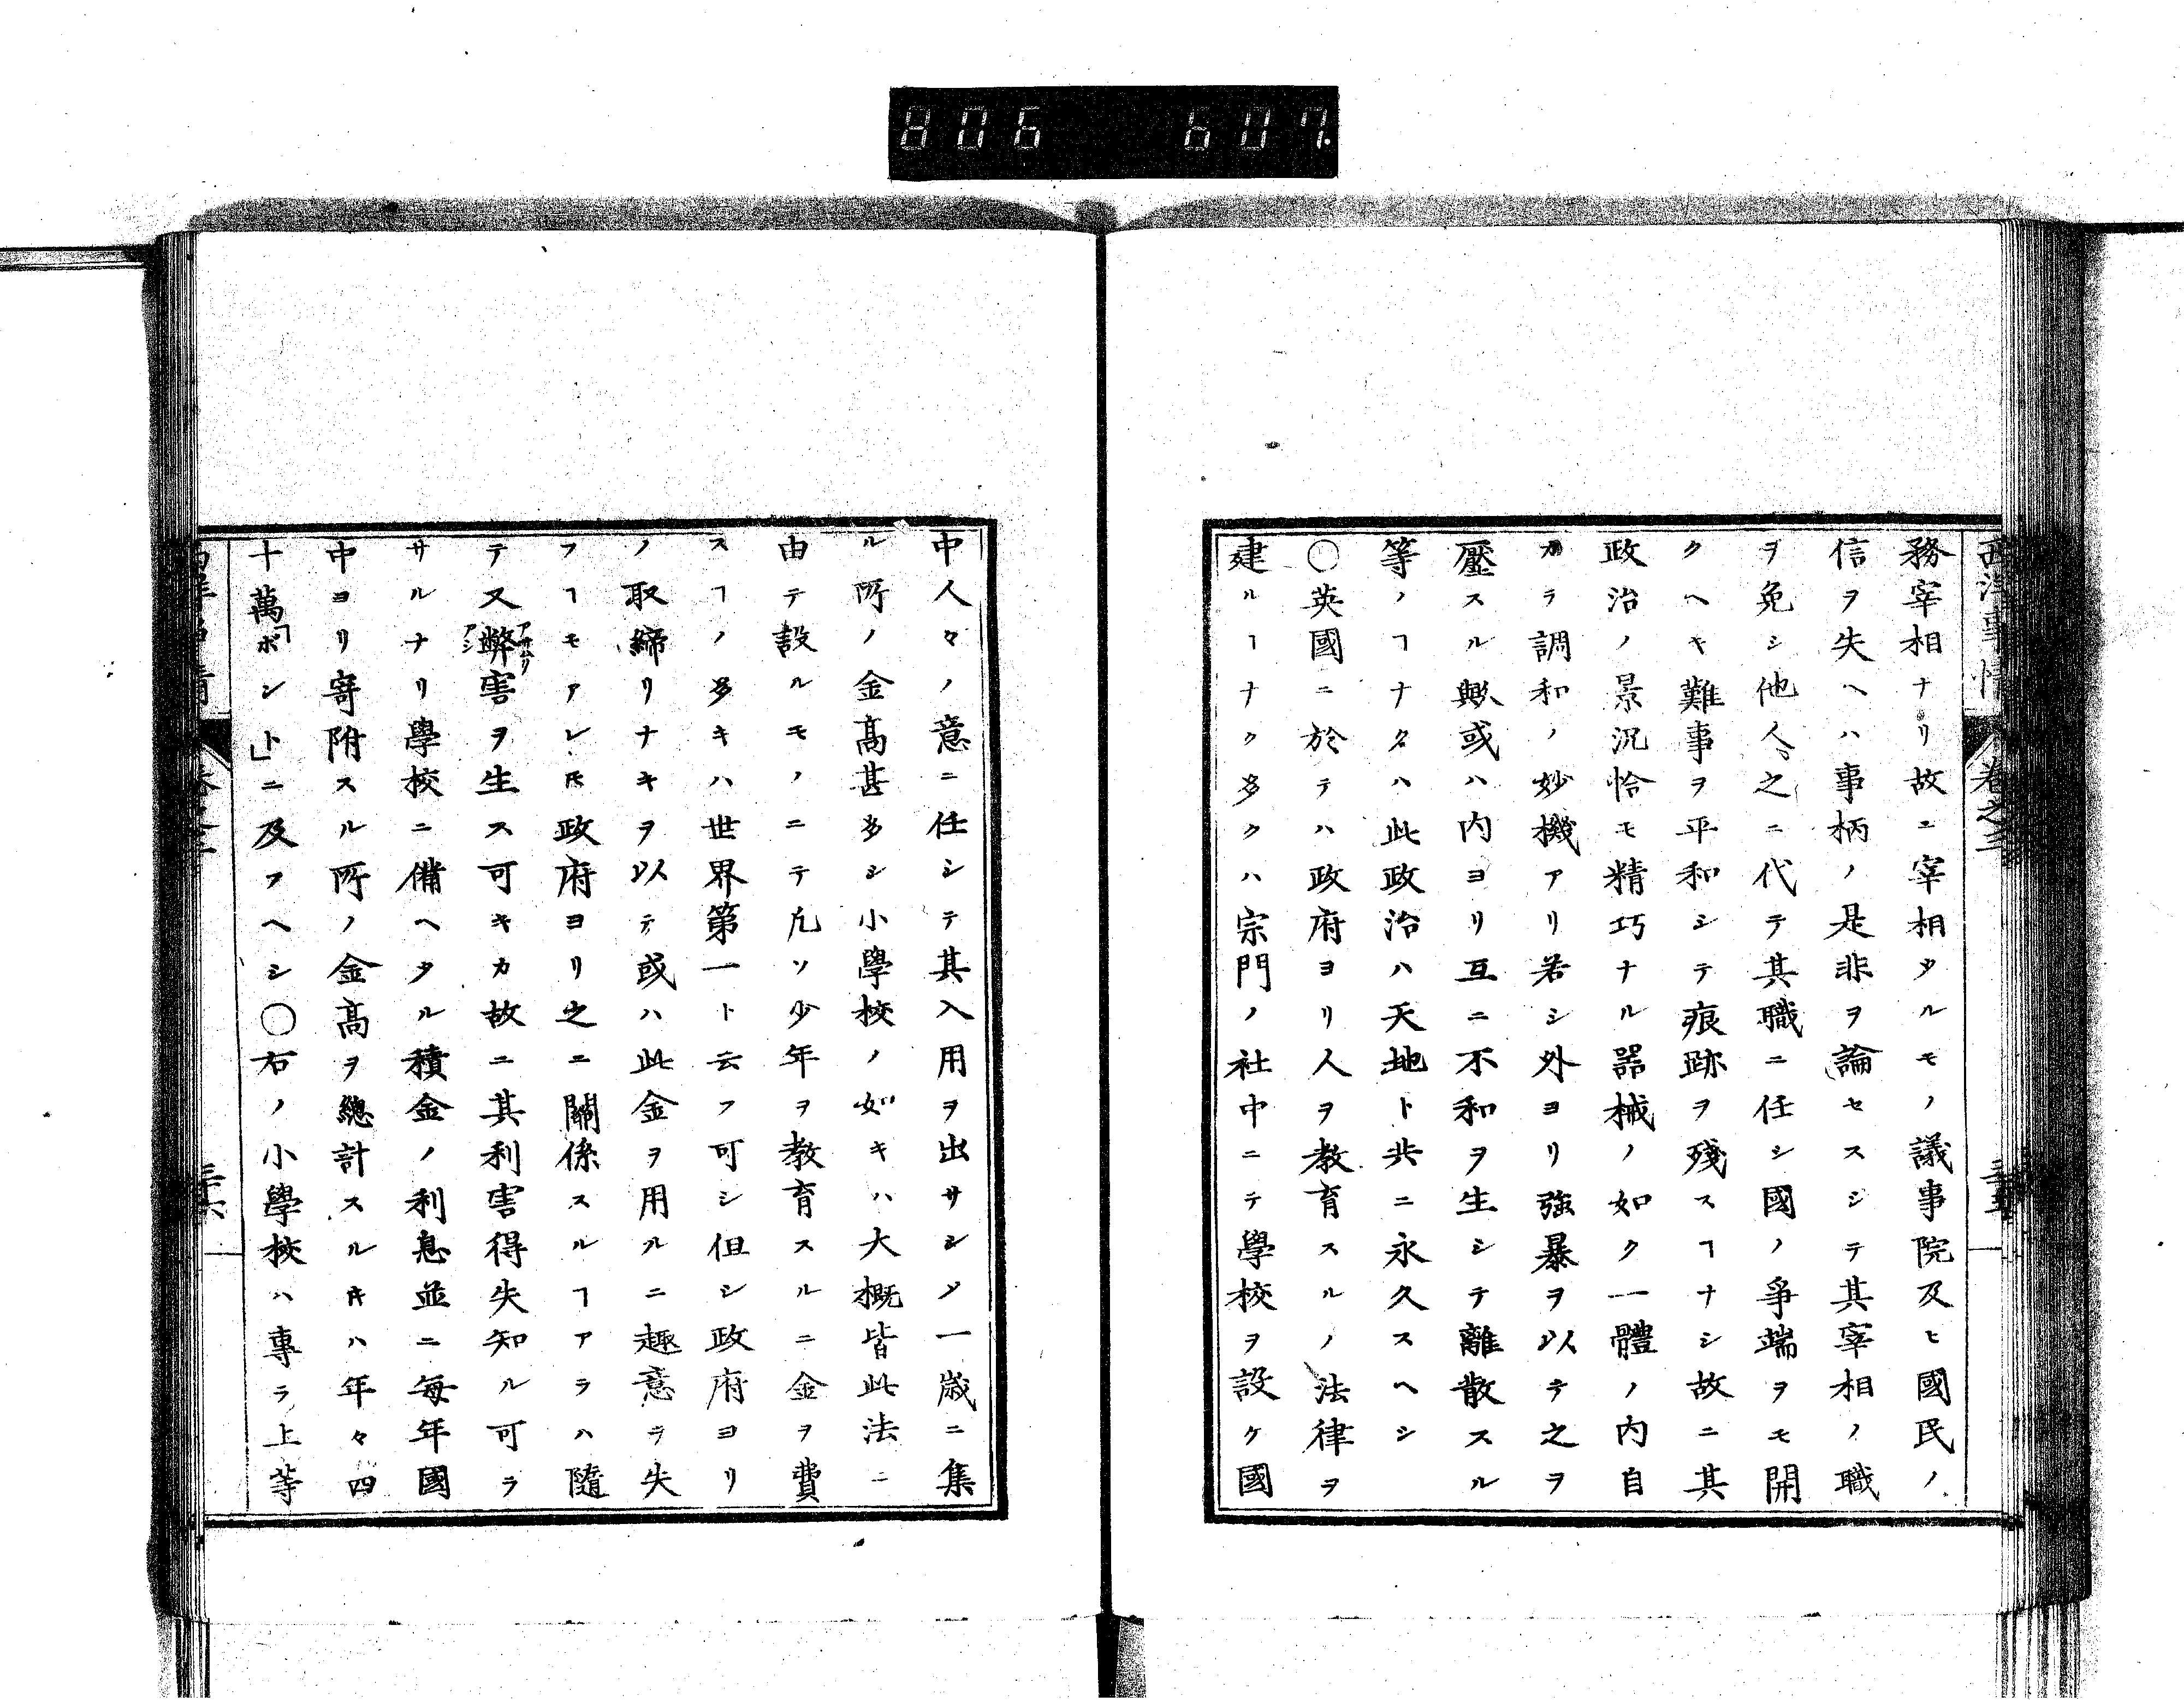 806 607.
西洋事情 卷之三 三五
務宰相ナリ故ニ宰相タルモノ議事院及ヒ國民ノ
信ヲ失ヘハ事柄ノ是非ヲ論セスシテ其宰相ノ職
ヲ免シ他人之ニ代テ其職ニ任シ國ノ爭端ヲモ開
クヘキ難事ヲ平和シテ痕跡ヲ殘スヿナシ故ニ其
政治ノ景況恰モ精巧ナル器械ノ如ク一體ノ内自
カラ調和ノ妙機アリ若シ外ヨリ強暴ヲ以テ之ヲ
壓スル歟或ハ内ヨリ互ニ不和ヲ生シテ離散スル
等ノヿナクハ此政治ハ天地ト共ニ永久スヘシ
〇英國ニ於テハ政府ヨリ人ヲ教育スルノ法律ヲ
建ルヿナク多クハ宗門ノ社中ニテ學校ヲ設ケ國
中人々ノ意ニ任シテ其入用ヲ出サシメ一歳ニ集
ル所ノ金高甚多シ小學校ノ如キハ大概皆此法ニ
由テ設ルモノニテ凡ソ少年ヲ教育スルニ金ヲ費
スヿノ多キハ世界第一ト云フ可シ但シ政府ヨリ
ノ取締リナキヲ以テ或ハ此金ヲ用ルニ趣意ヲ失
フヿモアレ𪜈政府ヨリ之ニ關係スルヿアラハ隨
テ又弊害ヲ生ス可キカ故ニ其利害得失知ル可ラ
サルナリ學校ニ備ヘタル積金ノ利息並ニ毎年國
中ヨリ寄附スル所ノ金高ヲ總計スルキハ年々四
十萬「ポンド」ニ及フヘシ〇右ノ小學校ハ專ラ上等
西洋事情 三六